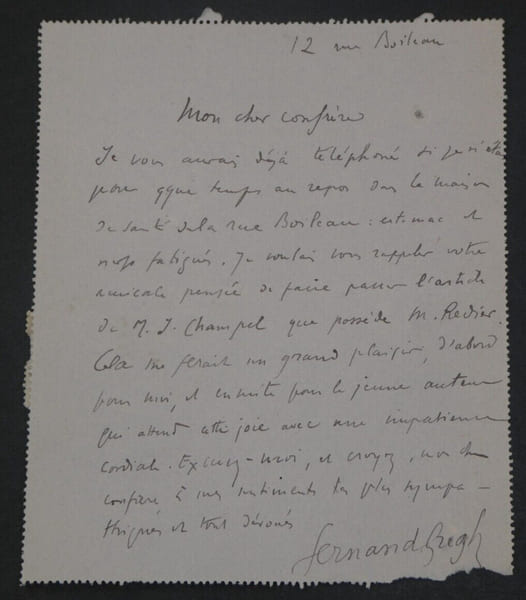 12 rue Boileau
Mon cher confrère
Je vous aurais déjà téléphoné si je n'étais
pour qque temps au repos dans la maison
de santé de la rue Boileau : estomac et
nerfs fatigués. Je voulais vous rappeler votre
amicale pensée de faire passer l'article
de M. J. Champel que possède M. Redier.
Cela me ferait un grand plaisir, d'abord
pour moi, et ensuite pour le jeune auteur
qui attend cette joie avec une impatience
cordiale. Excusez-moi, et croyez, mon cher
confrère à mes sentiments les plus sympa-
thiques et tout dévoués
Fernand Gregh